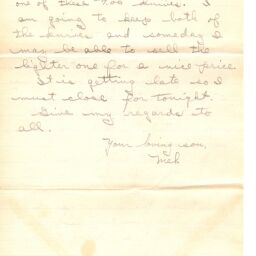 one of these 9.00 knives. I
am going to keep both of
the knives and someday I
may be able to sell the
lighter one for a nice price.
It is getting late so I
must close for tonight.
Give my regards to
all.
Your loving son,
Mel